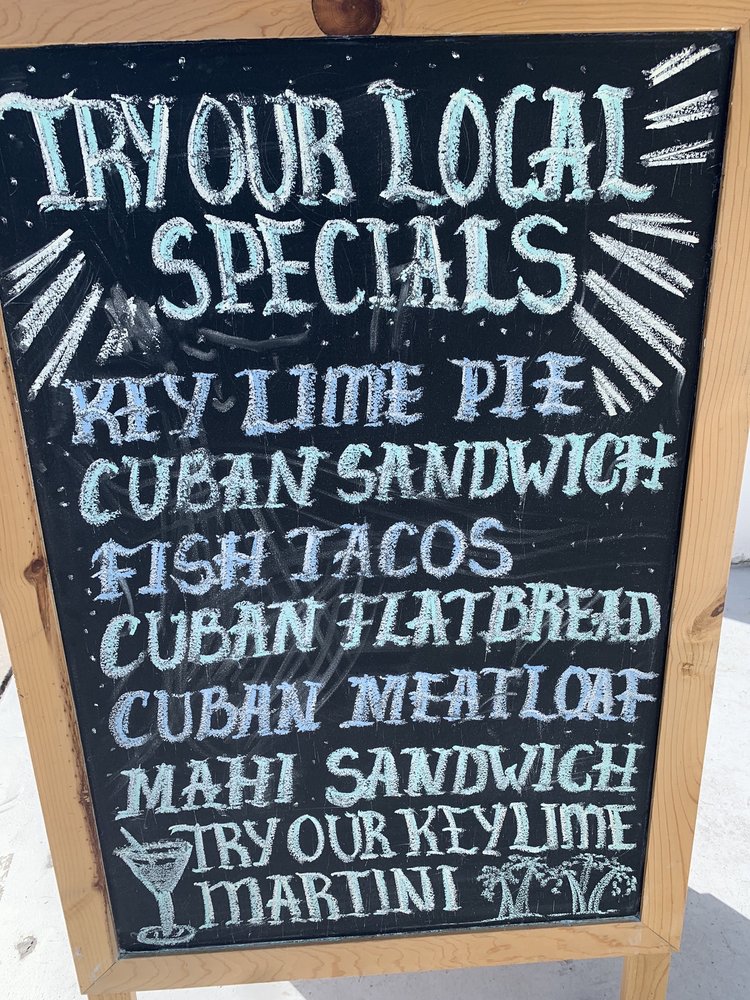 TRY OUR LOCAL
SPECIALS
KEY LIME PIE
CUBAN SANDWICH
FISH TACOS
CUBAN FLATBREAD
CUBAN MEATLOAF
MAHI SANDWICH
TRY OUR KEY LIME
MARTINI